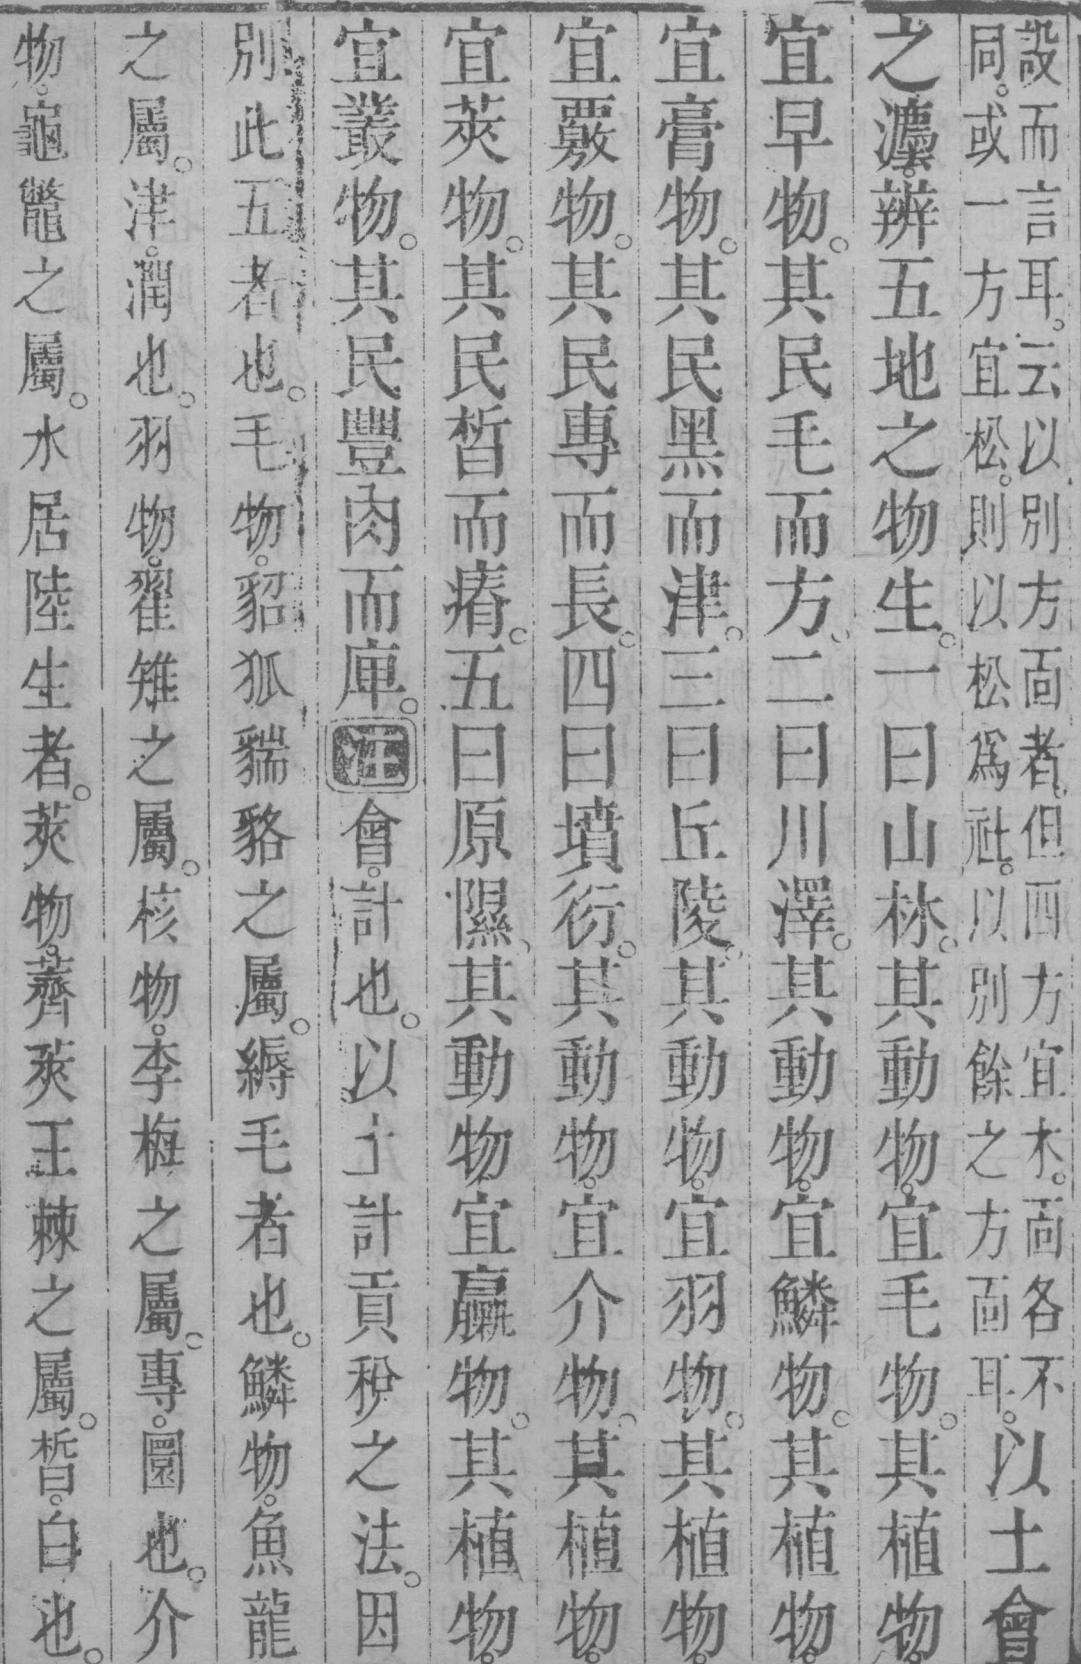 設而言耳。云以別方面者。但四方宜木。面各不
同。或一方宜松。則以松爲社。以別餘之方面耳。
以土會
之灋。辨五地之物生。一曰山林。其動物。宜毛物。其植物。
宜早物。其民毛而方。二曰川澤。其動物。宜鱗物。其植物。
宜膏物。其民黑而津。三曰丘陵。其動物。宜羽物。其植物。
宜覈物。其民專而長。四曰墳衍。其動物。宜介物。其植物。
宜莢物。其民晳而瘠。五曰原隰。其動物。宜臝物。其植物。
宜叢物。其民豐肉而庳。注會。計也。以土計貢稅之法。因
別此五者也。毛物。貂狐貒貉之屬。縟毛者也。鱗物。魚龍
之屬。津。潤也。羽物。翟雉之屬。核物。李梅之屬。專。圜也。介
物。龜鼈之屬。水居陸生者。莢物。薺莢王棘之屬。晳。白也。